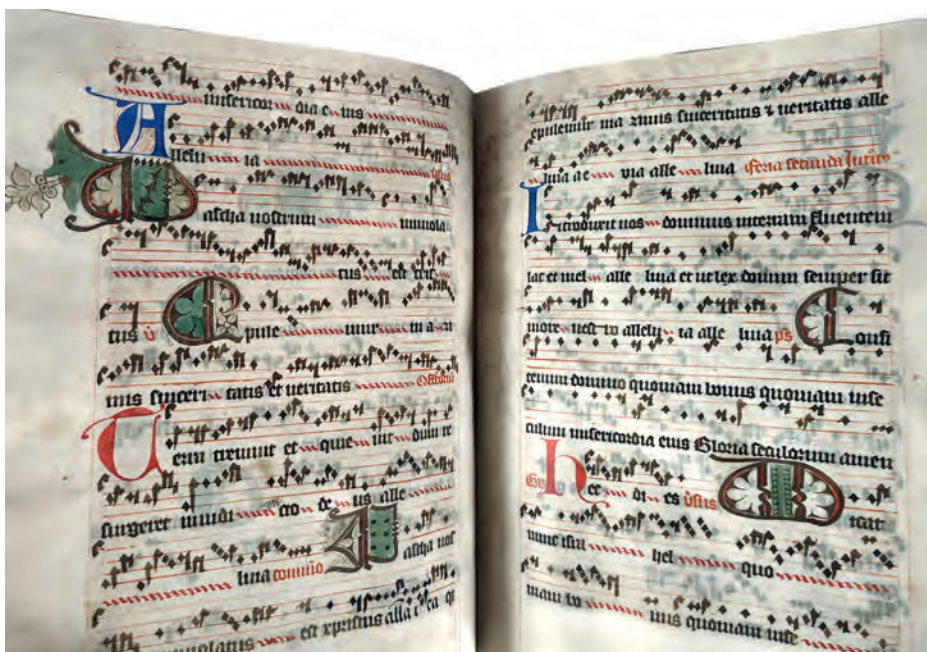 misericor dia e ius
Allelu ia v̄sus
Pascha nostrum immola
tus est xp̄is
tus v̄ Epule mur in a zi
mis sinceri tatis et veritatis Offertoriū
Terra tremuit et quie uit dum re
surgeret in iudi cio de us alle
luia comūio Pascha nos
immolatus est xpristus alla
epulemur in a zimis sinceritatis ⁊ ueritatis alle
luia al le luia alle luia Feria secunda Introit9
Introduxit nos dominus in terram fluentem
lac et mel alle luia et ut lex domini semper sit
in ore uestro allelu ia alle luia ps Confi
temini domino quoniam bonus quoniam in se
culum misericordia eius Gloria seculorum amen
Gr̄ Hec di es v̄sus Dicat
nunc isra hel quo
niam bo nus quoniam in se